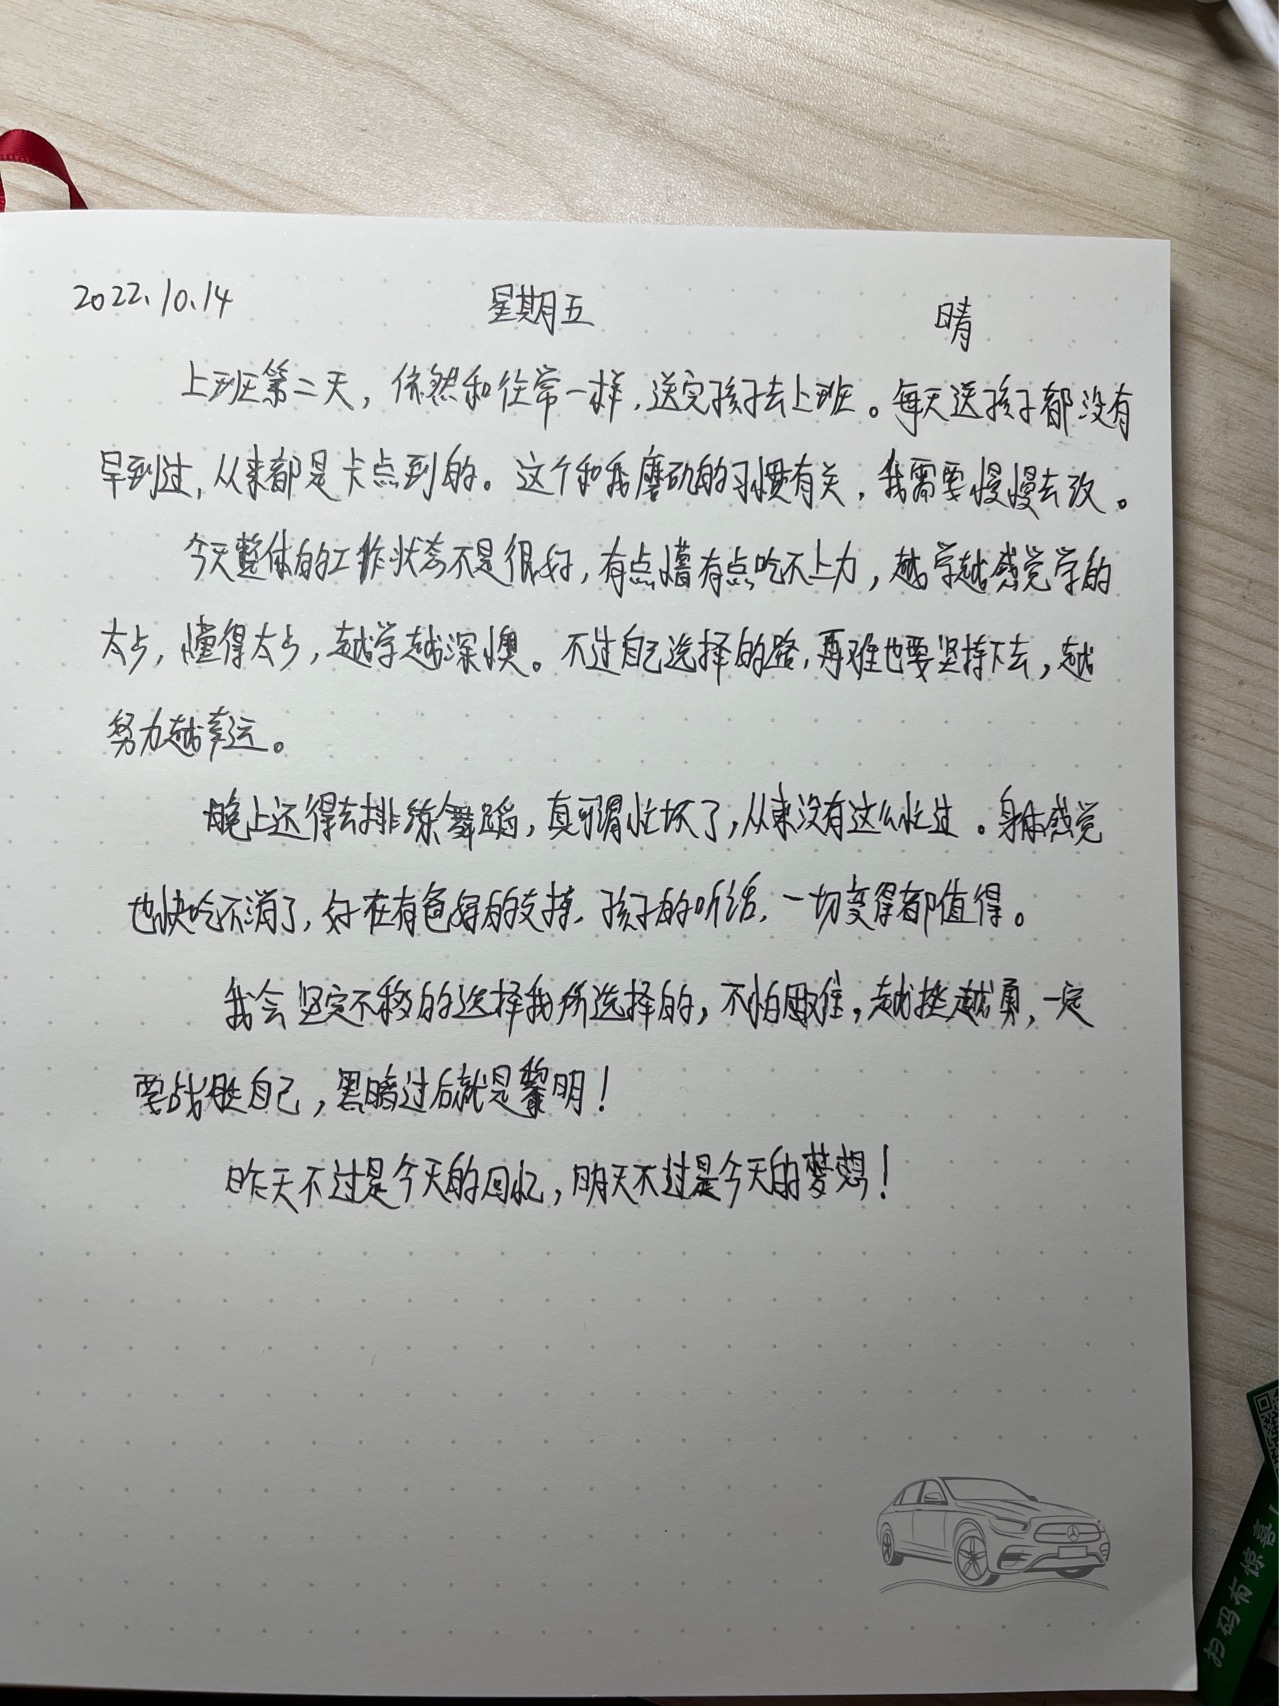 2022.10.14 星期五 晴
上班第二天，依然和往常一样，送完孩子去上班。每天送孩子都没有
早到过，从来都是卡点到的。这个和我磨矶的习惯有关，我需要慢慢去改。
今天整体的工作状态不是很好，有点懵有点吃不上力，越学越感觉学的
太少，懂得太少，越学越深懊。不过自己选择的路，再难也要坚持下去，越
努力越幸运。
晚上还得去排练舞蹈，真可谓忙坏了，从来没有这么忙过。身体感觉
也快吃不消了，好在有爸妈的支持，孩子的听话，一切变得都值得。
我会坚定不移的选择我所选择的，不怕困难，越挫越勇，一定
要战胜自己，黑暗过后就是黎明！
昨天不过是今天的回忆，明天不过是今天的梦想！
扫码有惊喜！